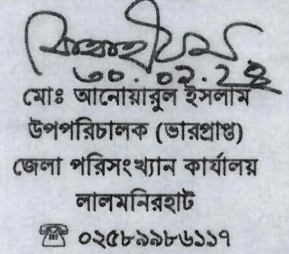 মোঃ আনোয়ারুল ইসলাম
উপপরিচালক (ভারপ্রাপ্ত)
জেলা পরিসংখ্যান কার্যালয়
লালমনিরহাট
☎ ০২৫৮৯৯৮৬১১৭